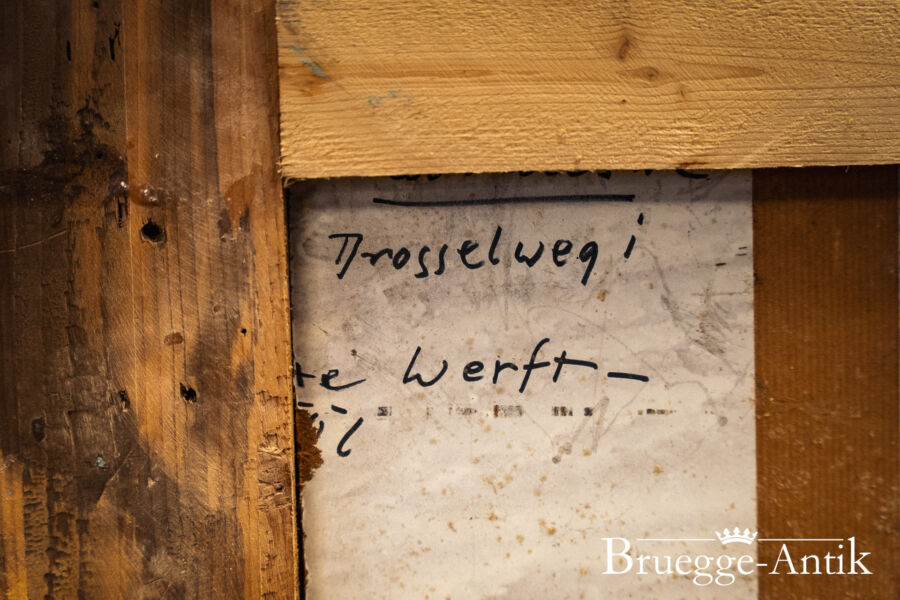 Drosselweg i
te Werft-
Bruegge-Antik